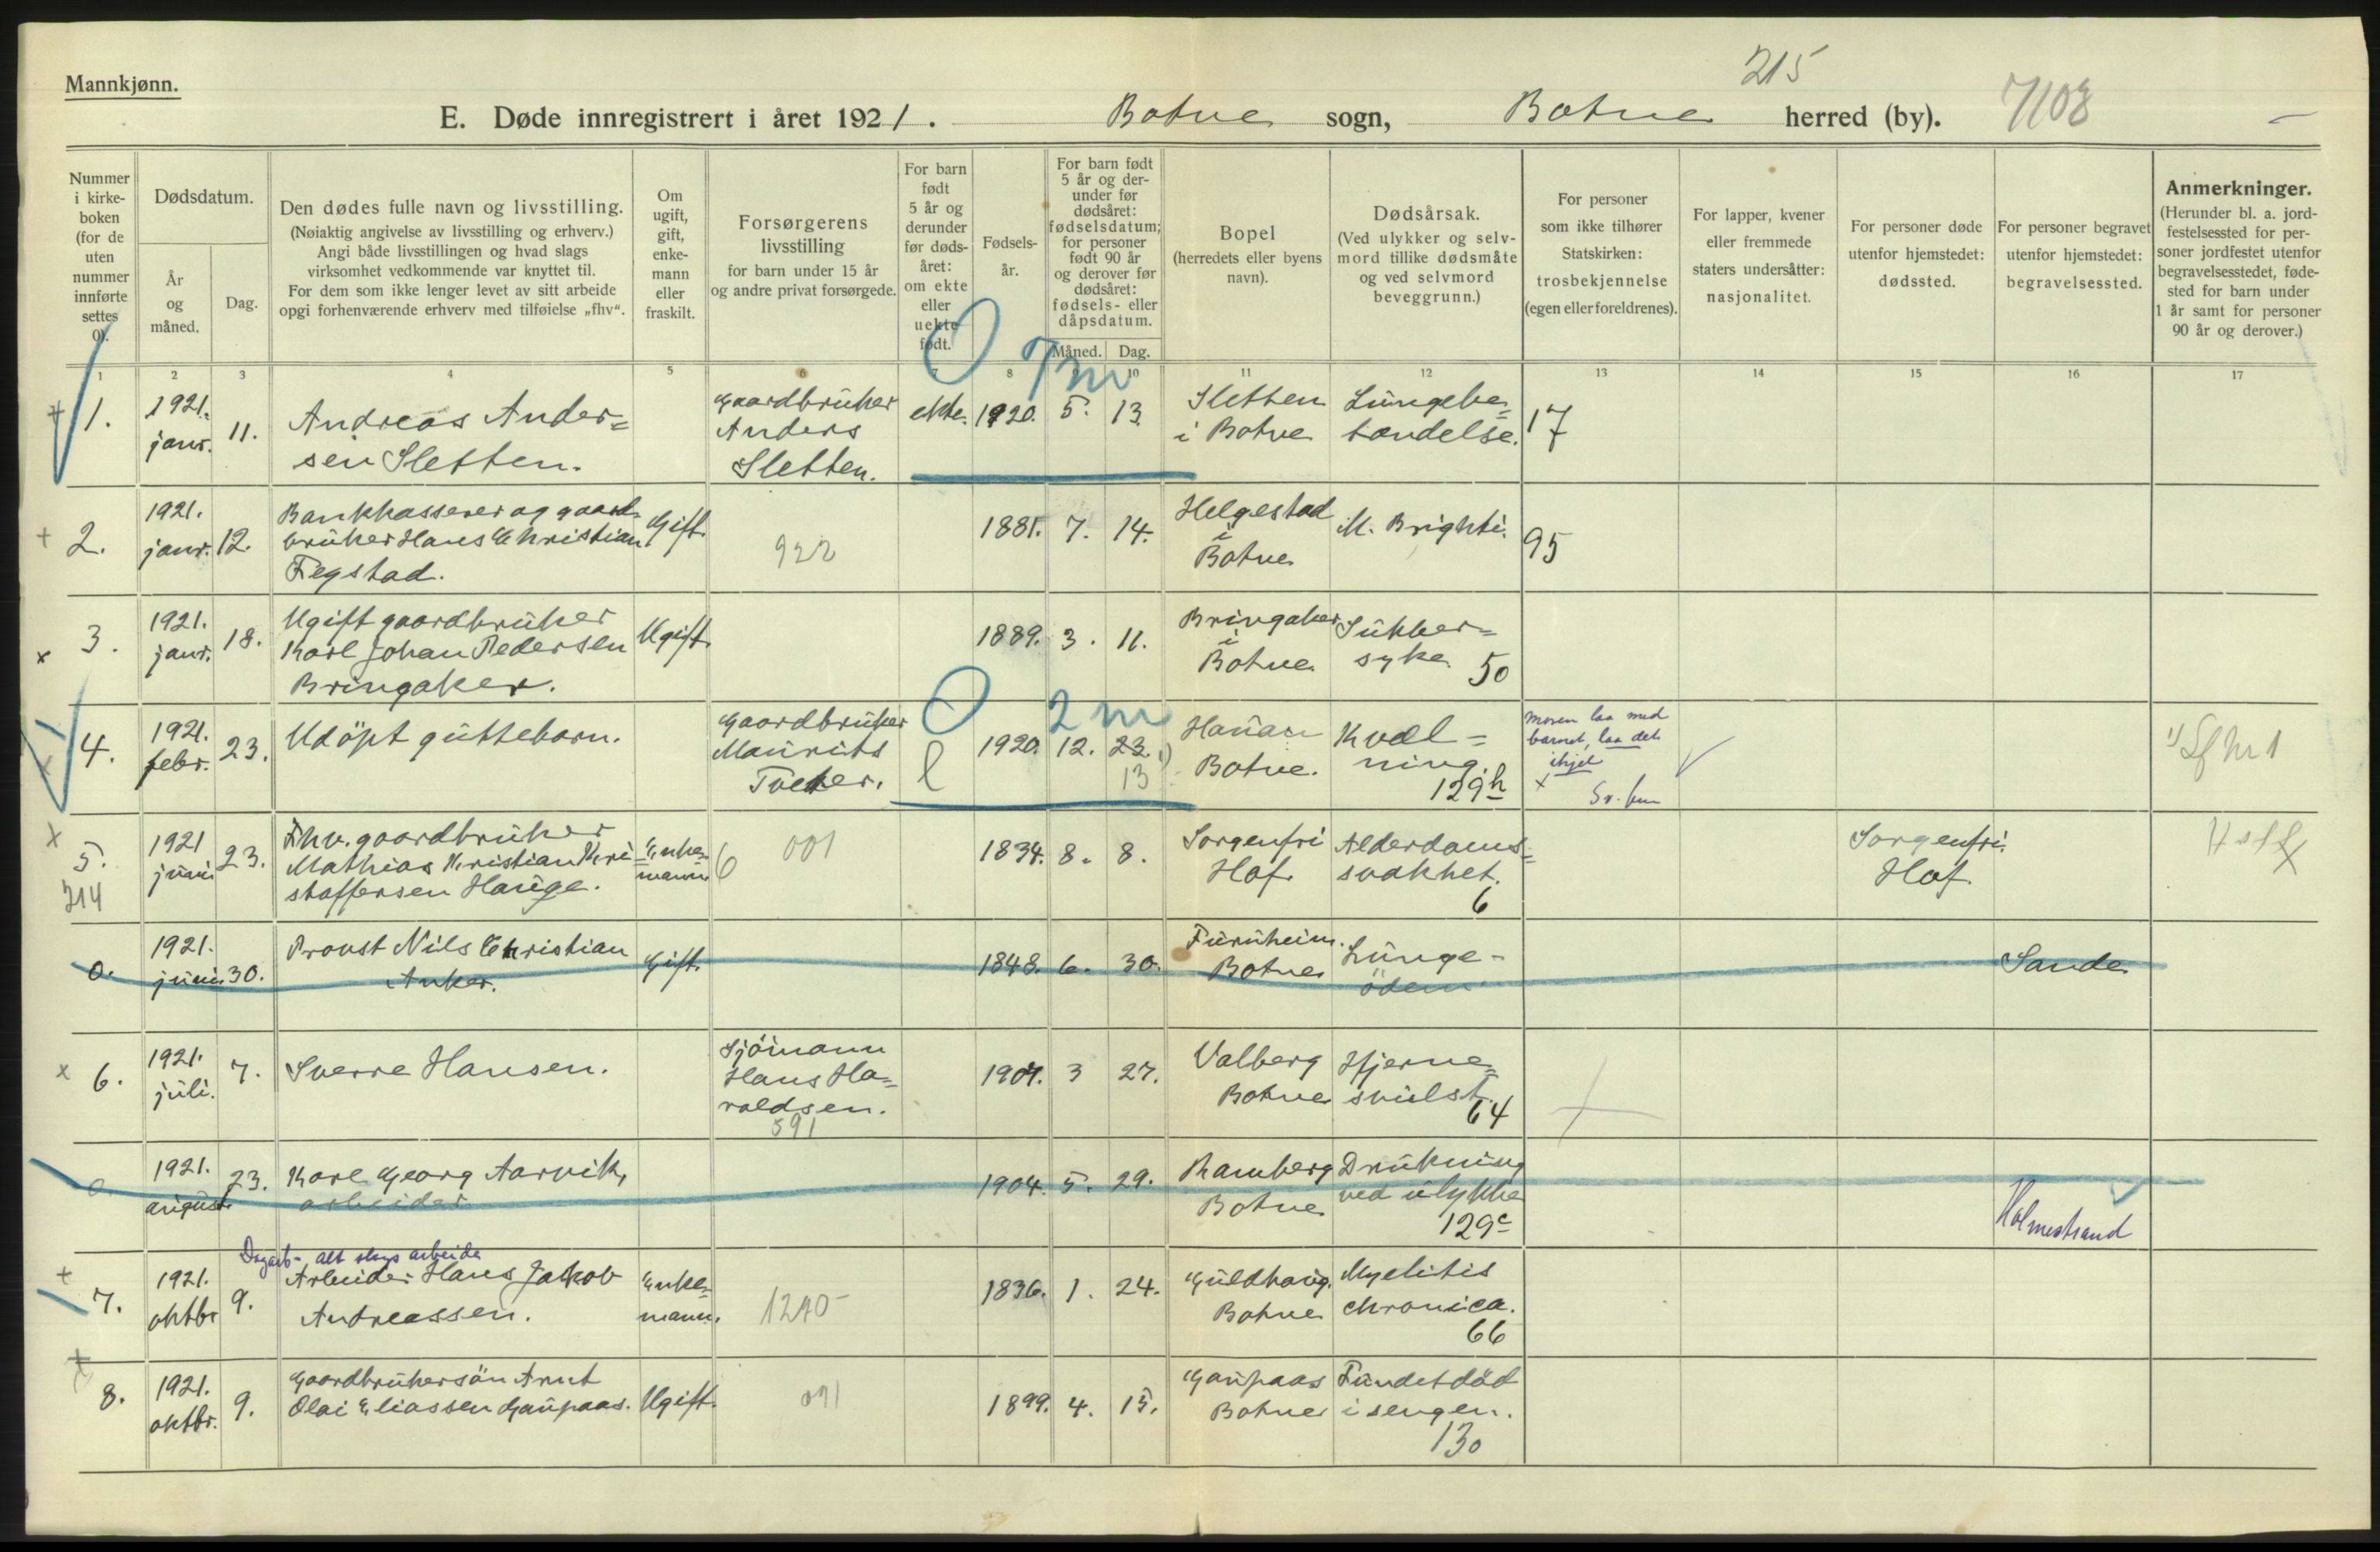 215
Mannkjønn.
E. Døde innregistrert i året 1921. Botne sogn, Botne herred (by). 7108
Nummer
i kirke-
boken
(for de
uten
nummer
innførte
settes
0).
Dødsdatum.
År
og
måned.
Dag.
Den dødes fulle navn og livsstilling.
(Nøiaktig angivelse av livsstilling og erhverv.)
Angi både livsstillingen og hvad slags
virksomhet vedkommende var knyttet til.
For dem som ikke lenger levet av sitt arbeide
opgi forhenværende erhverv med tilføielse „fhv“.
Om
ugift,
gift,
enke-
mann
eller
fraskilt.
Forsørgerens
livsstilling
for barn under 15 år
og andre privat forsørgede.
For barn
født
5 år og
derunder
før døds-
året:
om ekte
eller
uekte
født.
Fødsels-
år.
For barn født
5 år og der-
under før
dødsåret:
fødselsdatum;
for personer
født 90 år
og derover før
dødsåret:
fødsels- eller
dåpsdatum.
Måned. Dag.
Bopel
(herredets eller byens
navn).
Dødsårsak.
(Ved ulykker og selv-
mord tillike dødsmåte
og ved selvmord
beveggrunn.)
For personer
som ikke tilhører
Statskirken:
trosbekjennelse
(egen eller foreldrenes).
For lapper, kvener
eller fremmede
staters undersåtter:
nasjonalitet.
For personer døde
utenfor hjemstedet:
dødssted.
For personer begravet
utenfor hjemstedet:
begravelsessted.
Anmerkninger.
(Herunder bl. a. jord-
festelsessted for per-
soner jordfestet utenfor
begravelsesstedet, føde-
sted for barn under
1 år samt for personer
90 år og derover.)
1 2 3 4 5 6 7 8 9 10 11 12 13 14 15 16 17
0 7 m
1.
1921.
janr.
11.
Andreas Ander=
sen Sletten.
Gaardbruker
Anders
Sletten.
ekte. 1920. 5. 13.
Sletten
i Botne
Lungebe=
tændelse.
17
2.
1921.
janr.
12.
Bankkasserer og gaard-
bruker Hans Christian
Fegstad.
Gift.
922
1881. 7. 14.
Helgestad
i
Botne
M. Brighti.
95
3.
1921.
janr.
18.
Ugift gaardbruker
Karl Johan Pedersen
Bringaker.
Ugift.
1889. 3. 11.
Bringaker
i
Botne
Sukker=
syke.
50
0 2 m
4.
1921.
febr.
23.
Udöpt guttebarn.
Gaardbruker
Maurits
Tveter.
1920. 12. 23. 1)
13
Hanan
Botne.
Kvæl=
ning.
129h
moren laa med
barnet, laa det
ihjel
x
1)
5.
214
1921
juni
23.
Fhv. gaardbruker
Mathias Kristian Kri=
stoffersen Hauge.
Enke=
mann.
6
001
1834. 8. 8.
Sorgenfri
Hof.
Alderdoms=
svakhet.
6
Sorgenfri.
Hof.
0.
1921.
juni
30.
Provst Nils Christian
Anker.
Gift.
1848. 6. 30.
Furuheim.
Botne
Lunge-
ödem
Sande
6.
1921.
juli.
7.
Sverre Hansen.
Sjömann
Hans Ha=
raldsen.
591
1907. 3 27.
Valberg
Botne
Hjerne=
svulst.
64
0.
1921.
august.
23.
Karl Georg Aarvik,
arbeider
1904. 5. 29.
Ramberg
Botne
Drukning
ved ulykke
129c
Holmestrand
7.
1921.
oktbr
9.
Dagarb- alt slags arbeide
Arbeider Hans Jakob
Andreassen.
Enke=
mann.
1240-
1836. 1. 24.
Guldhaug.
Botne
Myelitis
chronica.
66
8.
1921.
oktbr.
9.
Gaardbrukersön Arnt
Olai Eliassen Gaupaas.
Ugift.
091
1899. 4. 15.
Gaupaas
Botne
Fundet död
i sengen.
130